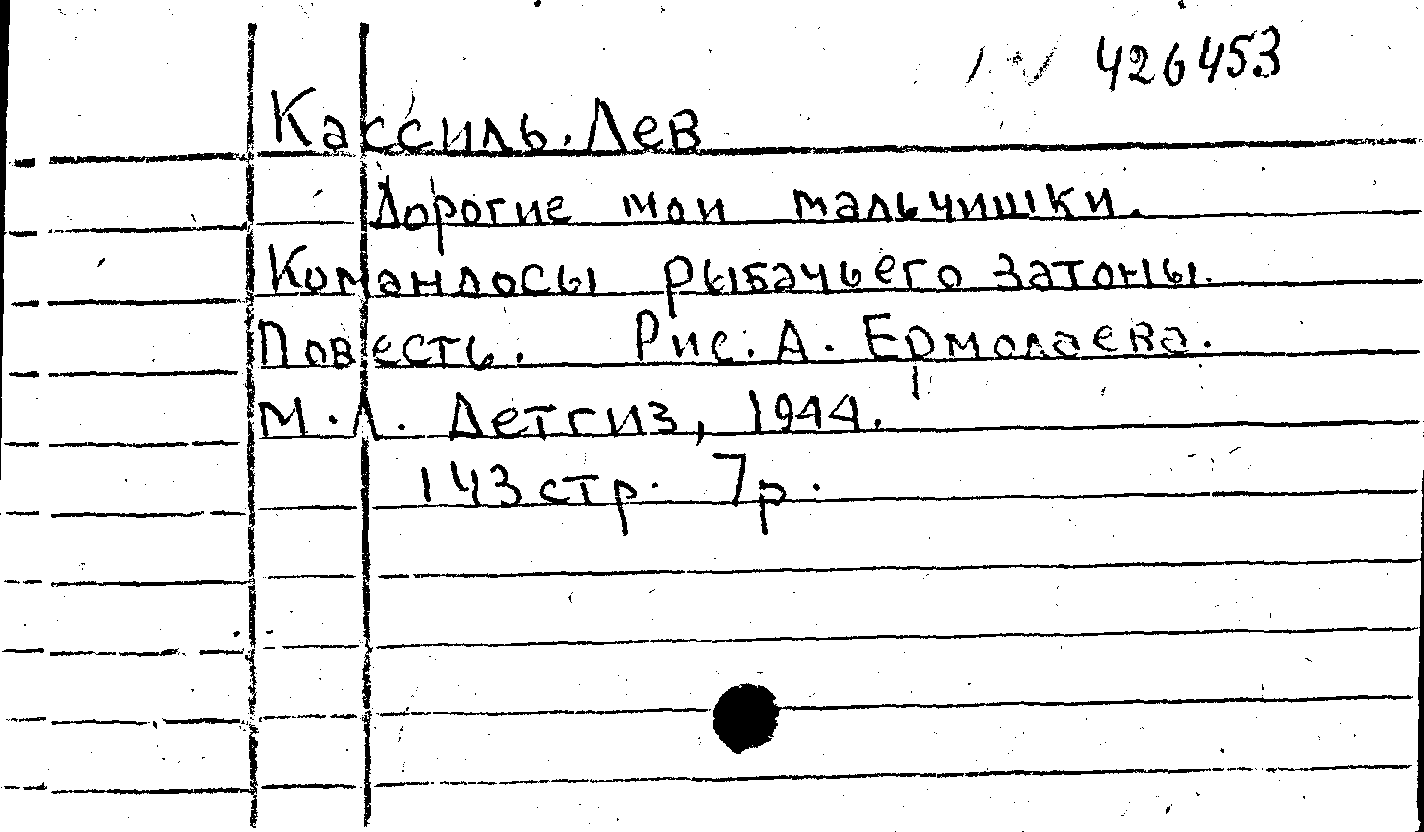 426453
Кассиль. Лев
Дорогие мои мальчишки.
Командосы рыбачьего затоны.
Повесть. Рис. А. Ермолаева.
М.Л. Детгиз, 1944.
143 стр. 7р.